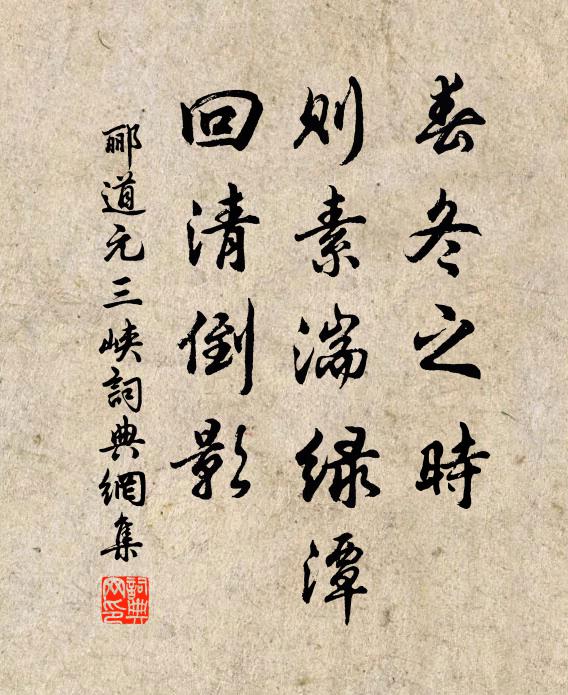 春冬之時
則素湍綠潭
回清倒影
酈道元三峽詞典網集
詞典
网印